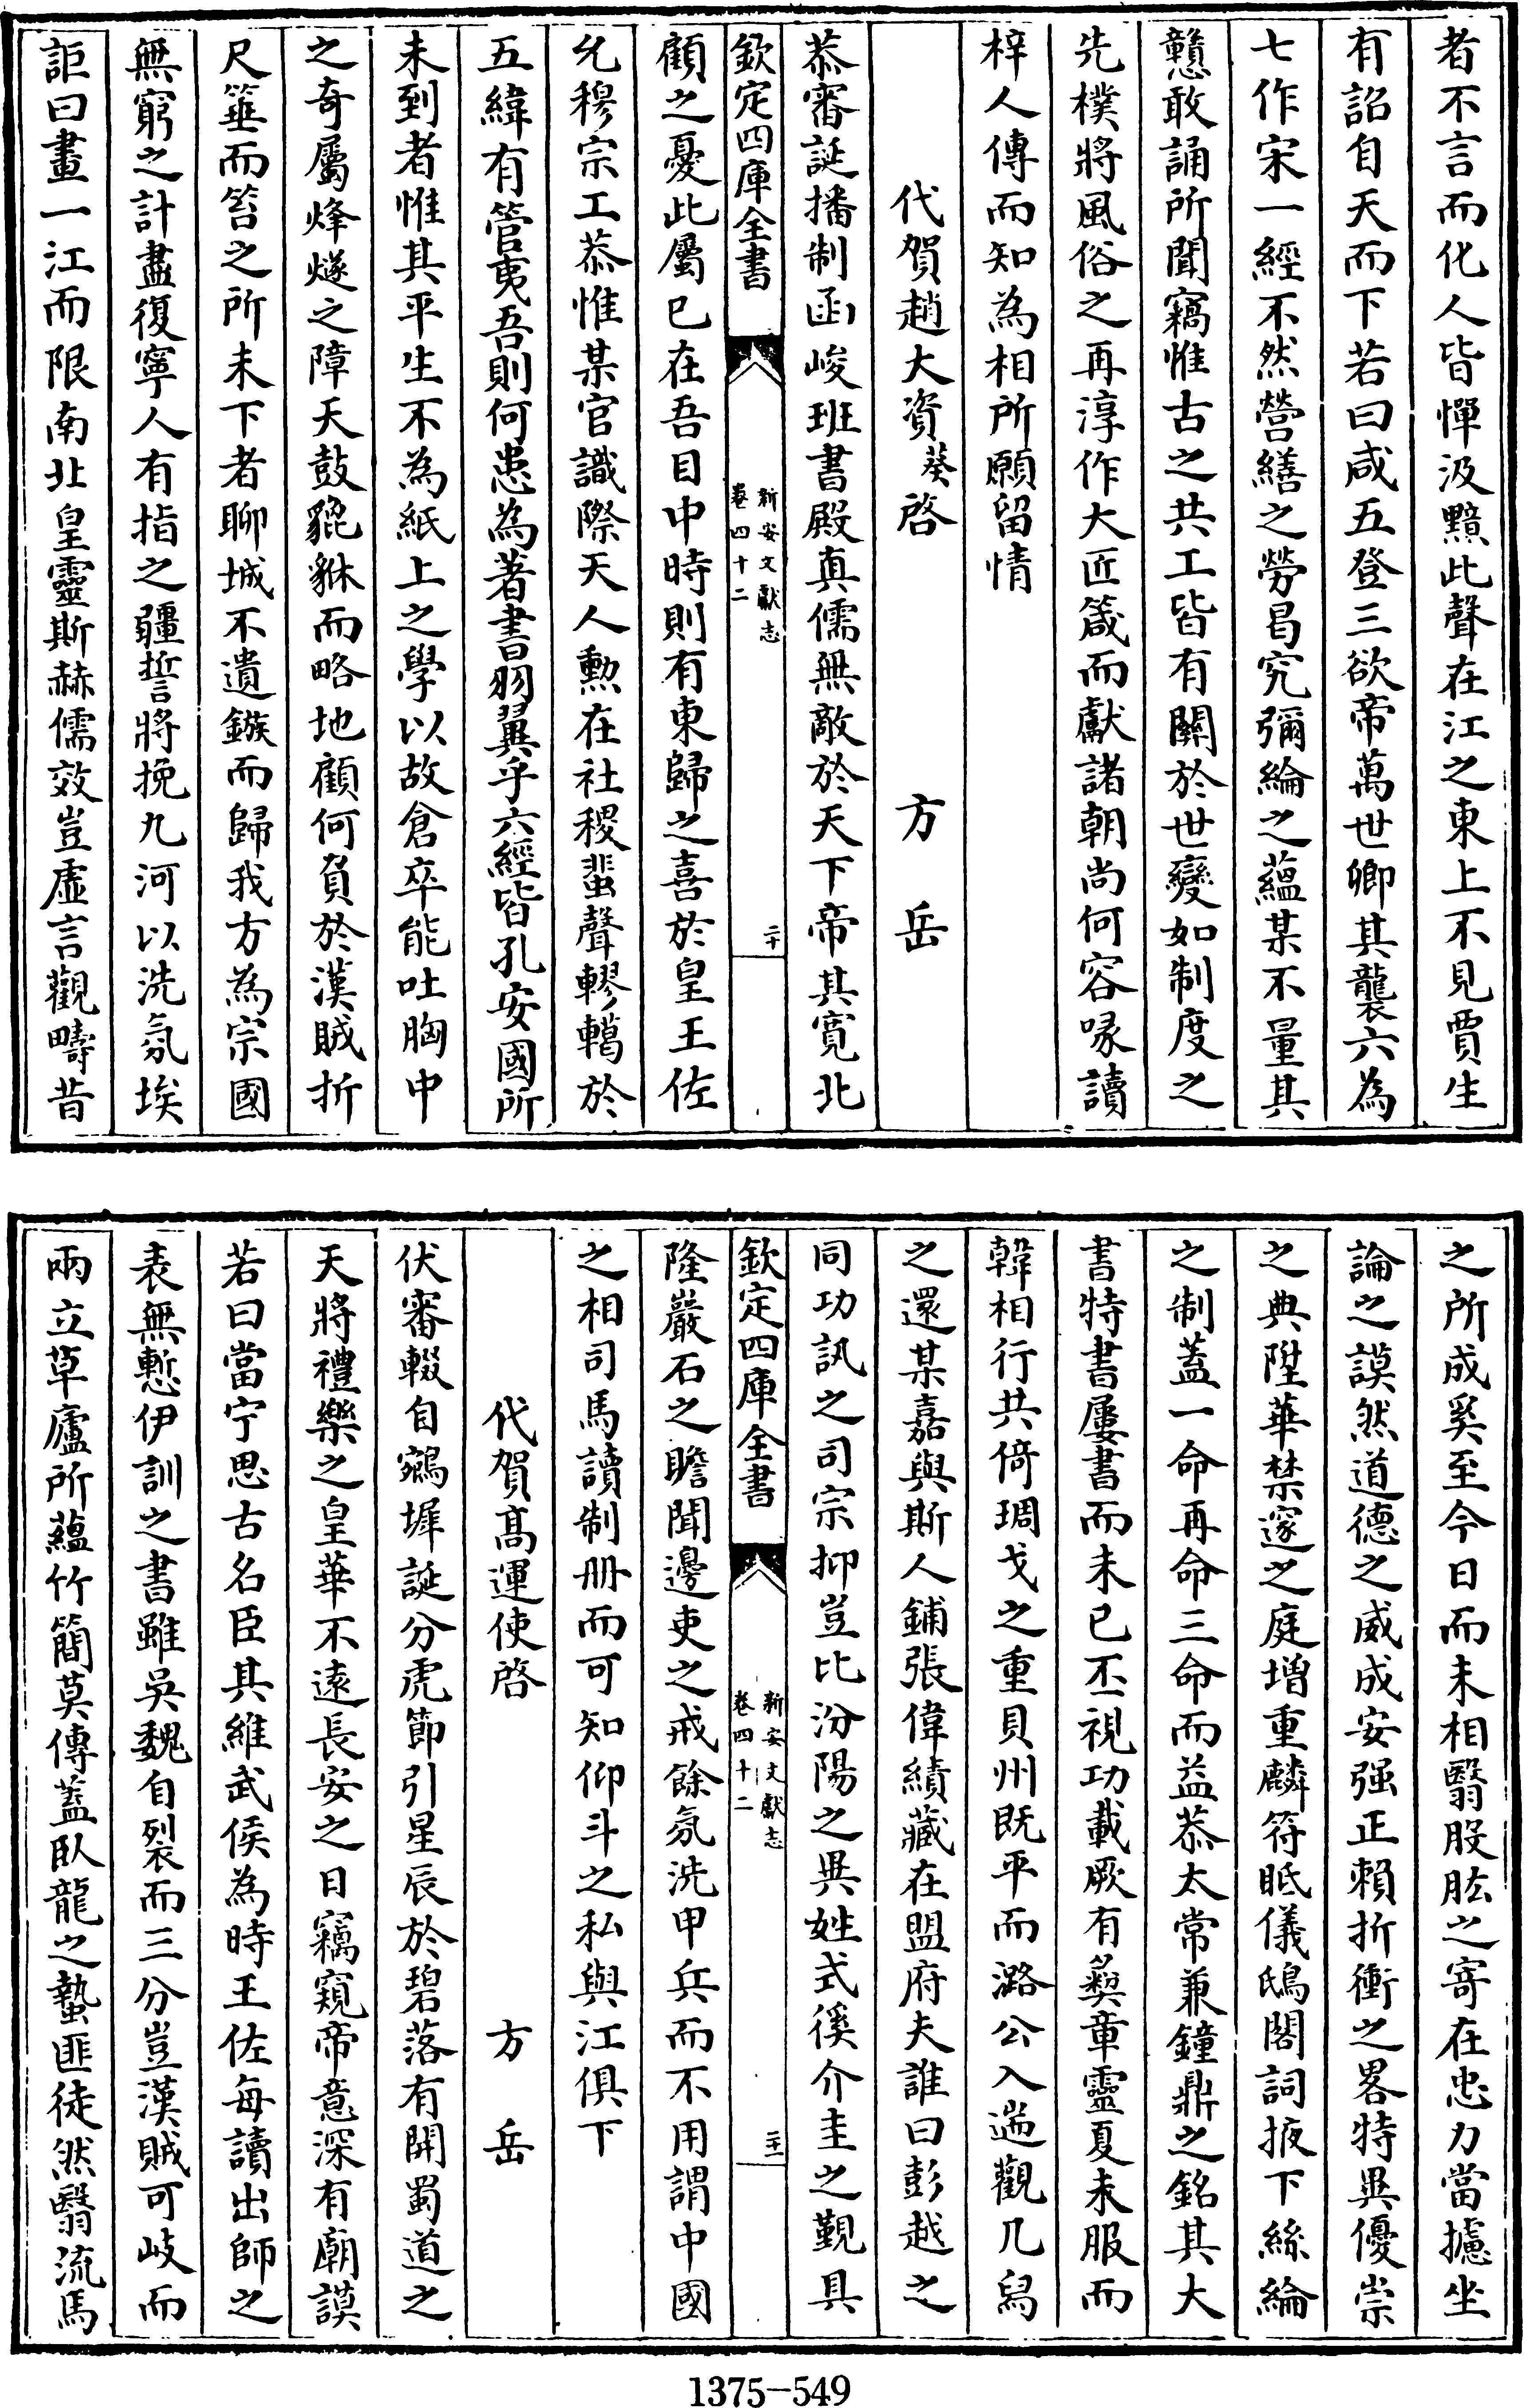 者不言而化人皆憚汲黯此聲在江之東上不見賈生
有詔自天而下若曰咸五登三欲帝萬世卿其襲六為
七作宋一經不然營繕之勞曷究彌綸之蘊某不量其
戇敢誦所聞竊惟古之共工皆有關於世變如制度之
先樸將風俗之再淳作大匠箴而獻諸朝尚何容喙讀
梓人傳而知為相所願留情
代賀趙大資葵啓 方岳
恭審誕播制函峻班書殿真儒無敵於天下帝其寛北
欽定四庫全書 新安文獻志 卷四十二 二十
顧之憂此屬已在吾目中時則有東歸之喜於皇王佐
允穆宗工恭惟某官識際天人勲在社稷蜚聲轇轕於
五緯有管夷吾則何患為著書羽翼乎六經皆孔安國所
未到者惟其平生不為紙上之學以故倉卒能吐胸中
之奇屬烽燧之障天鼓貔貅而略地顧何負於漢賊折
尺箠而笞之所未下者聊城不遺鏃而歸我方為宗國
無窮之計盡復寧人有指之疆誓將挽九河以洗氛埃
詎曰畫一江而限南北皇靈斯赫儒效豈虛言觀疇昔
之所成奚至今日而未相翳股肱之寄在忠力當攄坐
論之謨然道德之威成安强正賴折衝之畧特異優崇
之典陞華禁邃之庭增重麟符眡儀鴟閣詞掖下絲綸
之制蓋一命再命三命而益恭太常兼鐘鼎之銘其大
書特書屢書而未已丕視功載厥有彝章靈夏未服而
韓相行共倚琱戈之重貝州既平而潞公入遄觀几舄
之還某嘉與斯人鋪張偉績藏在盟府夫誰曰彭越之
同功訊之司宗抑豈比汾陽之異姓式徯介圭之覲具
欽定四庫全書 新安文獻志 卷四十二 二十一
隆巖石之瞻聞邊吏之戒餘氛洗甲兵而不用謂中國
之相司馬讀制册而可知仰斗之私與江俱下
代賀髙運使啓 方岳
伏審輟自鵷墀誕分虎節引星辰於碧落有開蜀道之
天將禮樂之皇華不遠長安之日竊窺帝意深有廟謨
若曰當宁思古名臣其維武侯為時王佐每讀出師之
表無慙伊訓之書雖吳魏自裂而三分豈漢賊可岐而
兩立草廬所蘊竹簡莫傳蓋臥龍之蟄匪徒然翳流馬
1375-549